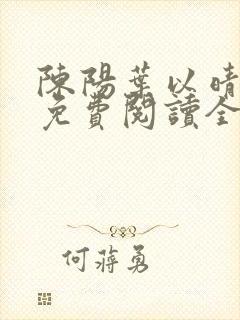 陳陽葉以晴
免費閱讀全
何蔣勇